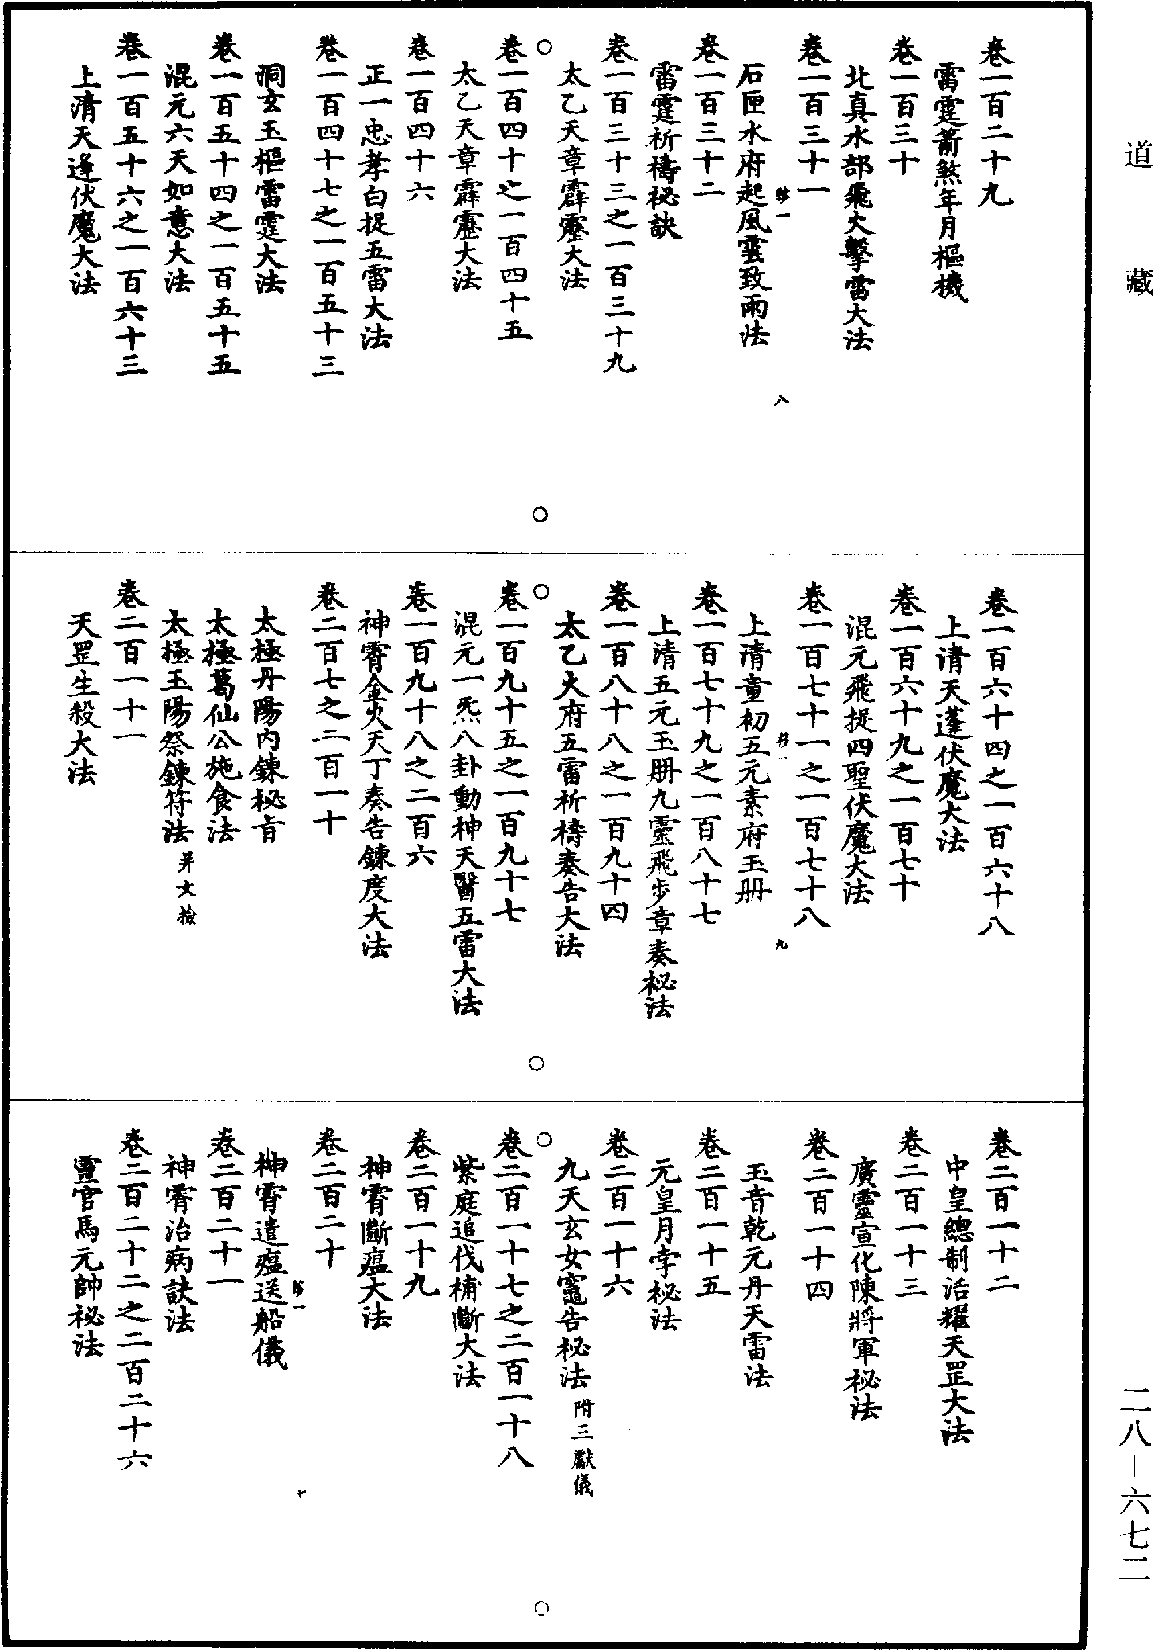 道藏
卷一百二十九
雷霆箭煞年月樞機
卷一百三十
北真水部飛火擊雷大法
卷一百三十一
石匣水府起風雲致雨法
八
卷一百三十二
雷霆祈禱秘訣
卷一百三十三之一百三十九
太乙天章霹靂大法
○
卷一百四十之一百四十五
太乙天章霹靂大法
卷一百四十六
正一忠孝白捉五雷大法
卷一百四十七之一百五十三
洞玄玉樞雷霆大法
卷一百五十四之一百五十五
混元六天如意大法
卷一百五十六之一百六十三
上清天逢伏魔大法
○
卷一百六十四之一百六十八
上清天蓬伏魔大法
卷一百六十九之一百七十
混元飛捉四聖伏魔大法
卷一百七十一之一百七十八
上清童初五元素府玉册
九
卷一百七十九之一百八十七
上清五元玉册九靈飛步章奏秘法
卷一百八十八之一百九十四
太乙火府五雷祈禱奏告大法
○
卷一百九十五之一百九十七
混元一炁八卦動神天醫五雷大法
卷一百九十八之二百六
神霄金火天丁奏告鍊度大法
卷二百七之二百一十
太極丹陽內鍊秘旨
太極葛仙公施食法
太極玉陽祭鍊符法 并文檢
卷二百一十一
天罡生殺大法
○
卷二百一十二
中皇總制活耀天罡大法
卷二百一十三
廣靈宣化陳將軍秘法
卷二百一十四
玉音乾元丹天雷法
卷二百一十五
元皇月孛秘法
卷二百一十六
九天玄女竈告秘法 附三獻儀
○
卷二百一十七之二百一十八
紫庭追伐補斷大法
卷二百一十九
神霄斷瘟大法
卷二百二十
神霄遣瘟送船儀
十
卷二百二十一
神霄治病訣法
卷二百二十二之二百二十六
靈官馬元帥秘法
○
二八—六七二